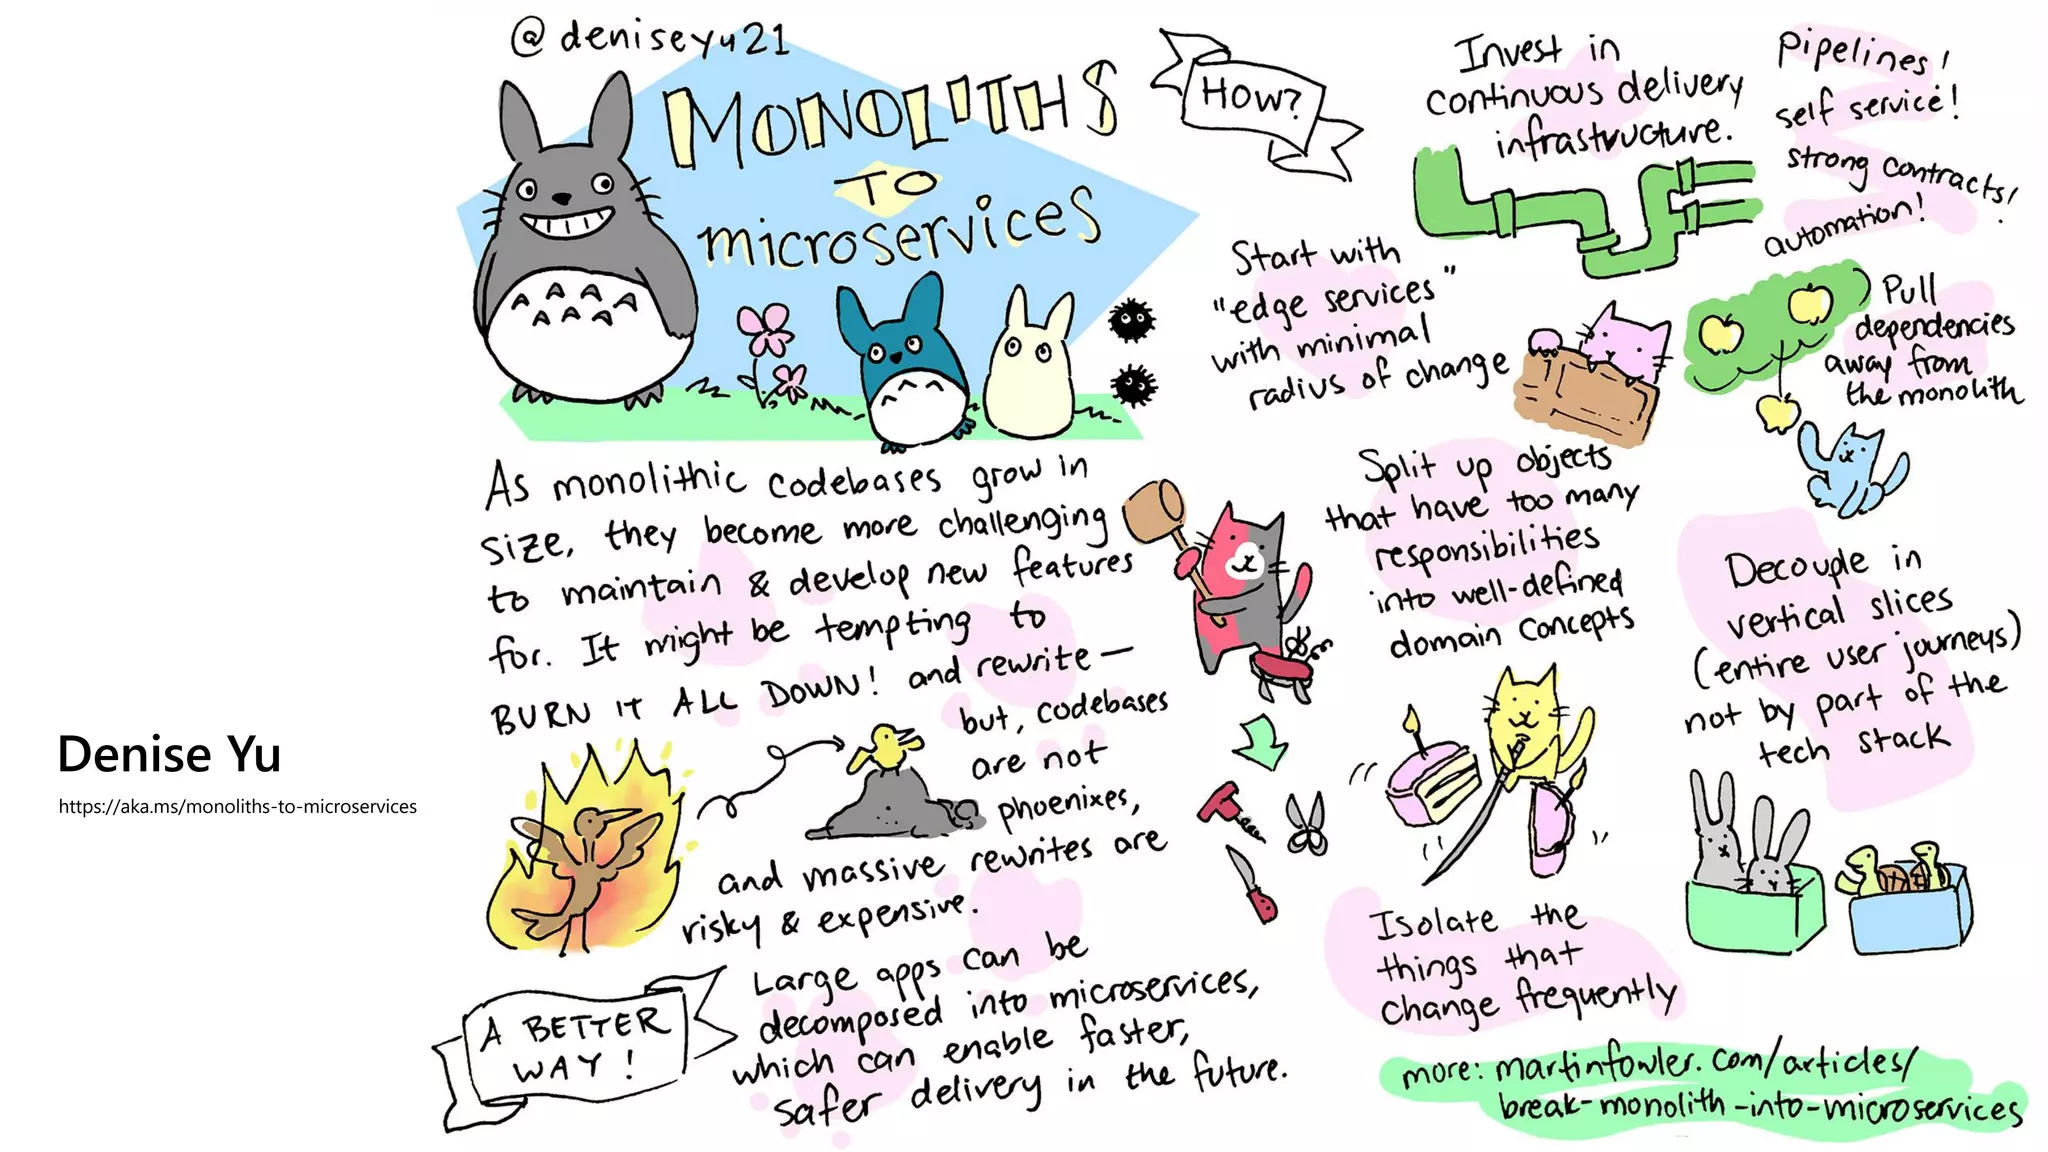 @deniseyu21
MONOLITHS
TO
microservices
As monolithic codebases grow in
size, they become more challenging
to maintain & develop new features
for. It might be tempting to
BURN IT ALL DOWN! and rewrite—
but, codebases
are not
phoenixes,
and massive rewrites are
risky & expensive.
A BETTER
WAY!
Large apps can be
decomposed into microservices,
which can enable faster,
safer delivery in the future.
HOW?
Invest in
continuous delivery
infrastructure.
Pipelines!
self service!
strong contracts!
automation!
Start with
"edge services"
with minimal
radius of change
Pull
dependencies
away from
the monolith
Split up objects
that have too many
responsibilities
into well-defined
domain concepts
Decouple in
vertical slices
(entire user journeys)
not by part of the
tech stack
Isolate the
things that
change frequently
more: martinfowler.com/articles/
break-monolith-into-microservices
Denise Yu
https://aka.ms/monoliths-to-microservices